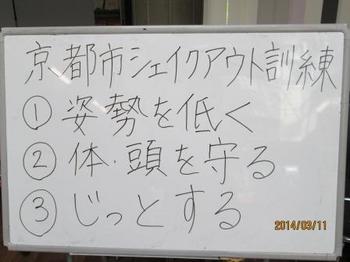 京都市シェイクアウト訓練
① 姿勢を低く
② 体・頭を守る
③ じっとする
2014/03/11